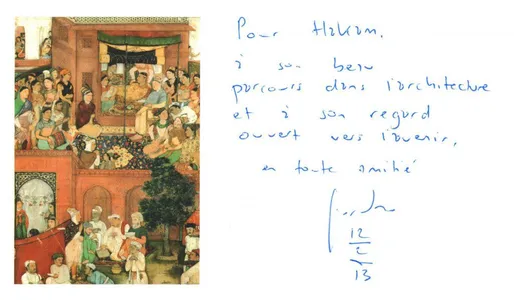 Pour Hakam.
à son beau
parcours dans l'architecture
et à son regard
ouvert vers l'avenir,
en toute amitié
12
2
13